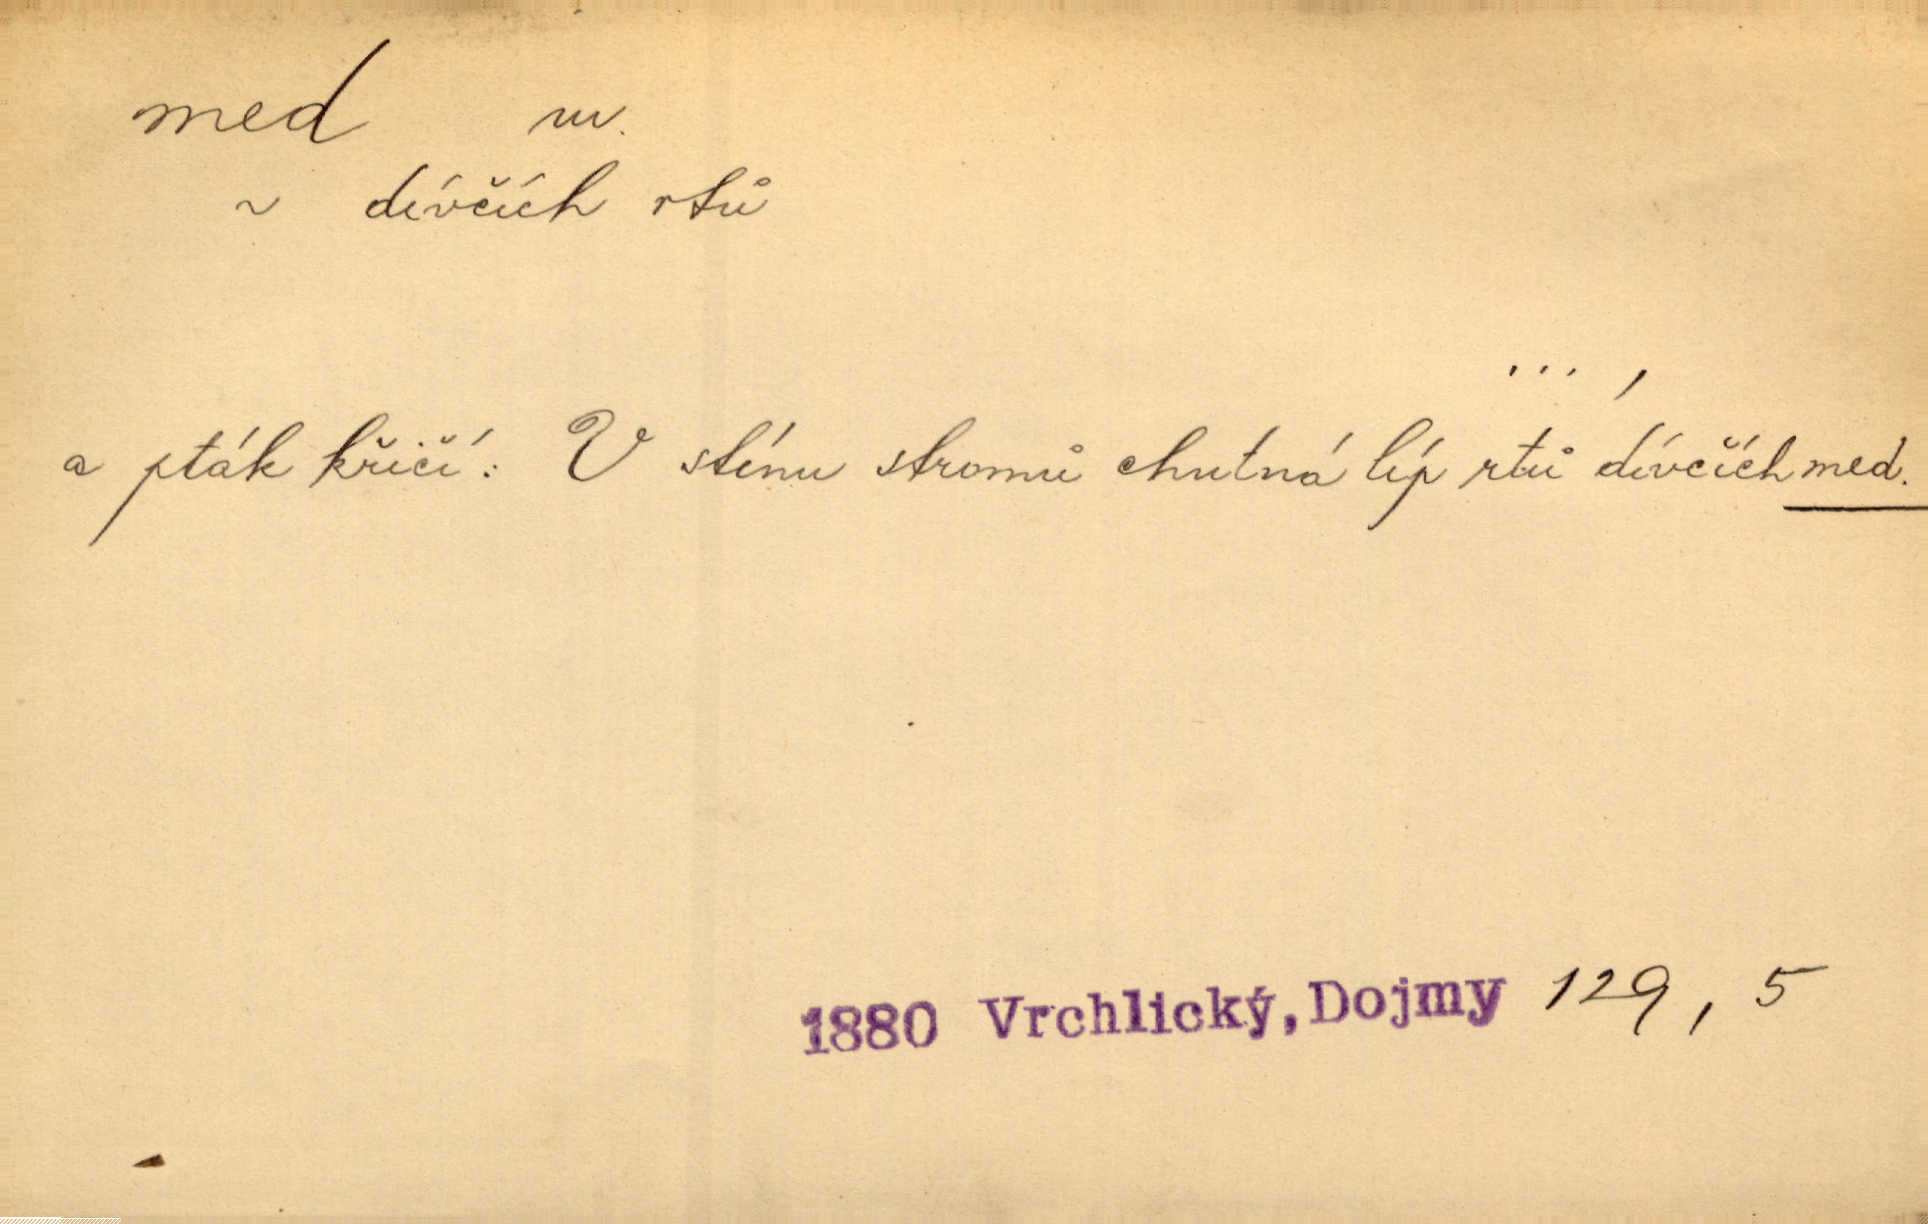 med m.
~ dívčích rtů
... ,
a pták křičí: V stínu stromů chutná líp rtů dívčích med.
1880 Vrchlický, Dojmy 129, 5